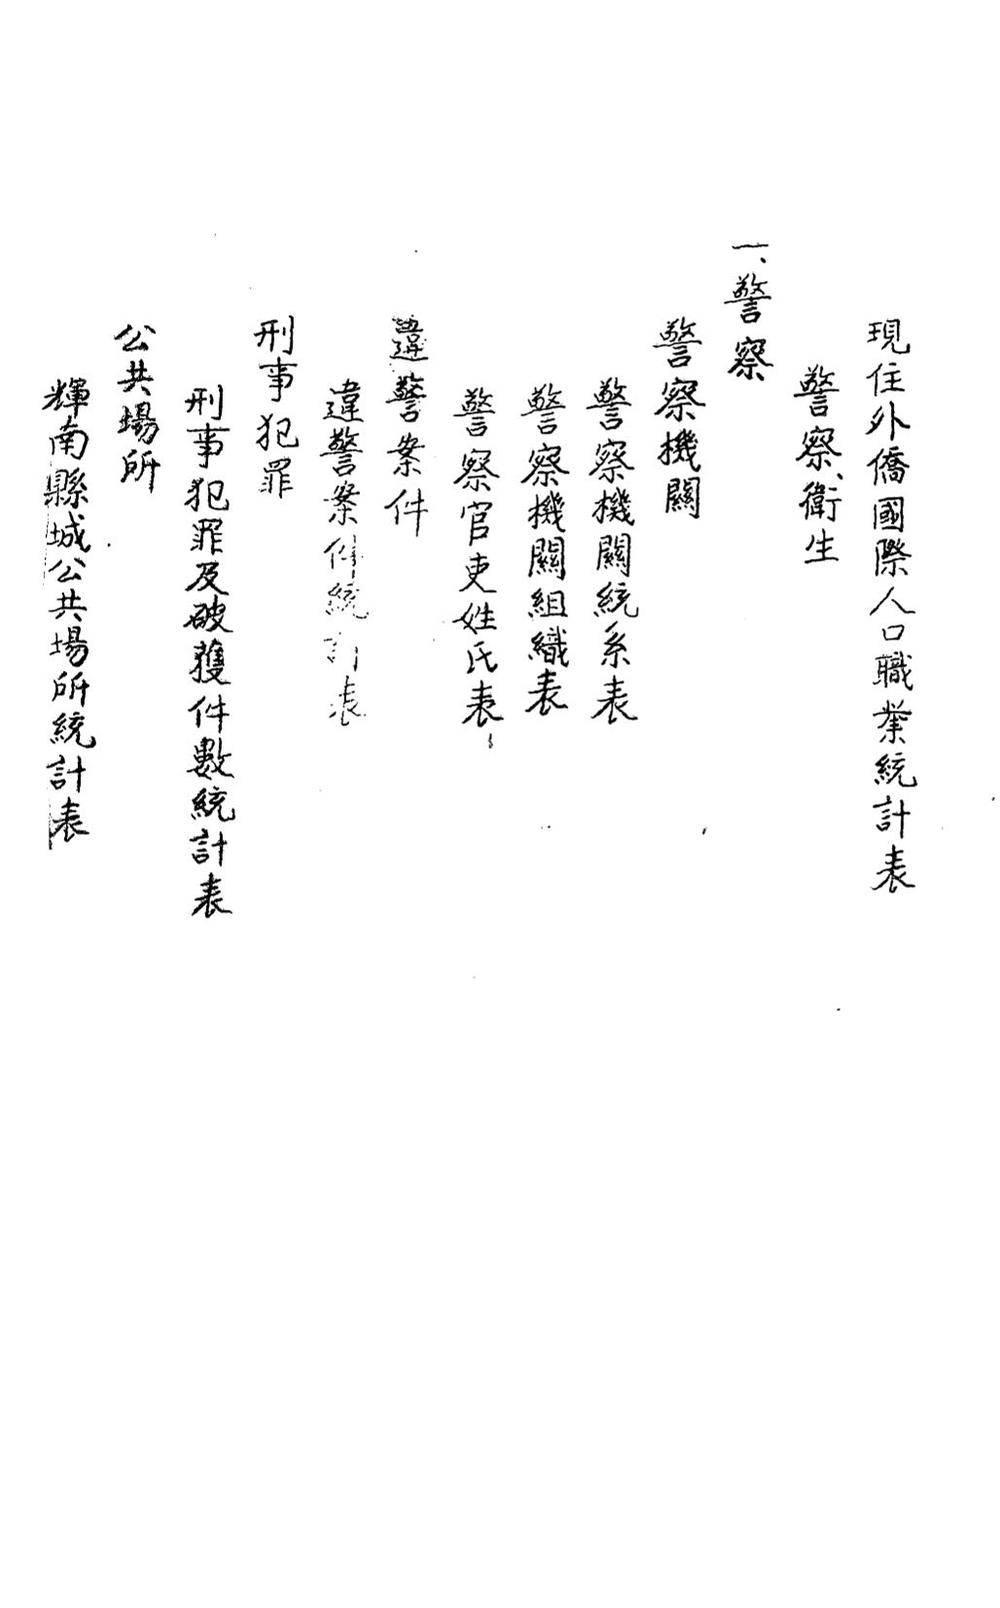 現住外僑國際人口職業統計表
警察、衛生
一、警察
警察機關
警察機關統系表
警察機關組織表
警察官吏姓氏表
違警案件
違警案件統計表
刑事犯罪
刑事犯罪及破獲件數統計表
公共場所
輝南縣城公共場所統計表